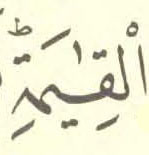 الْقِيٰمَةِؕ